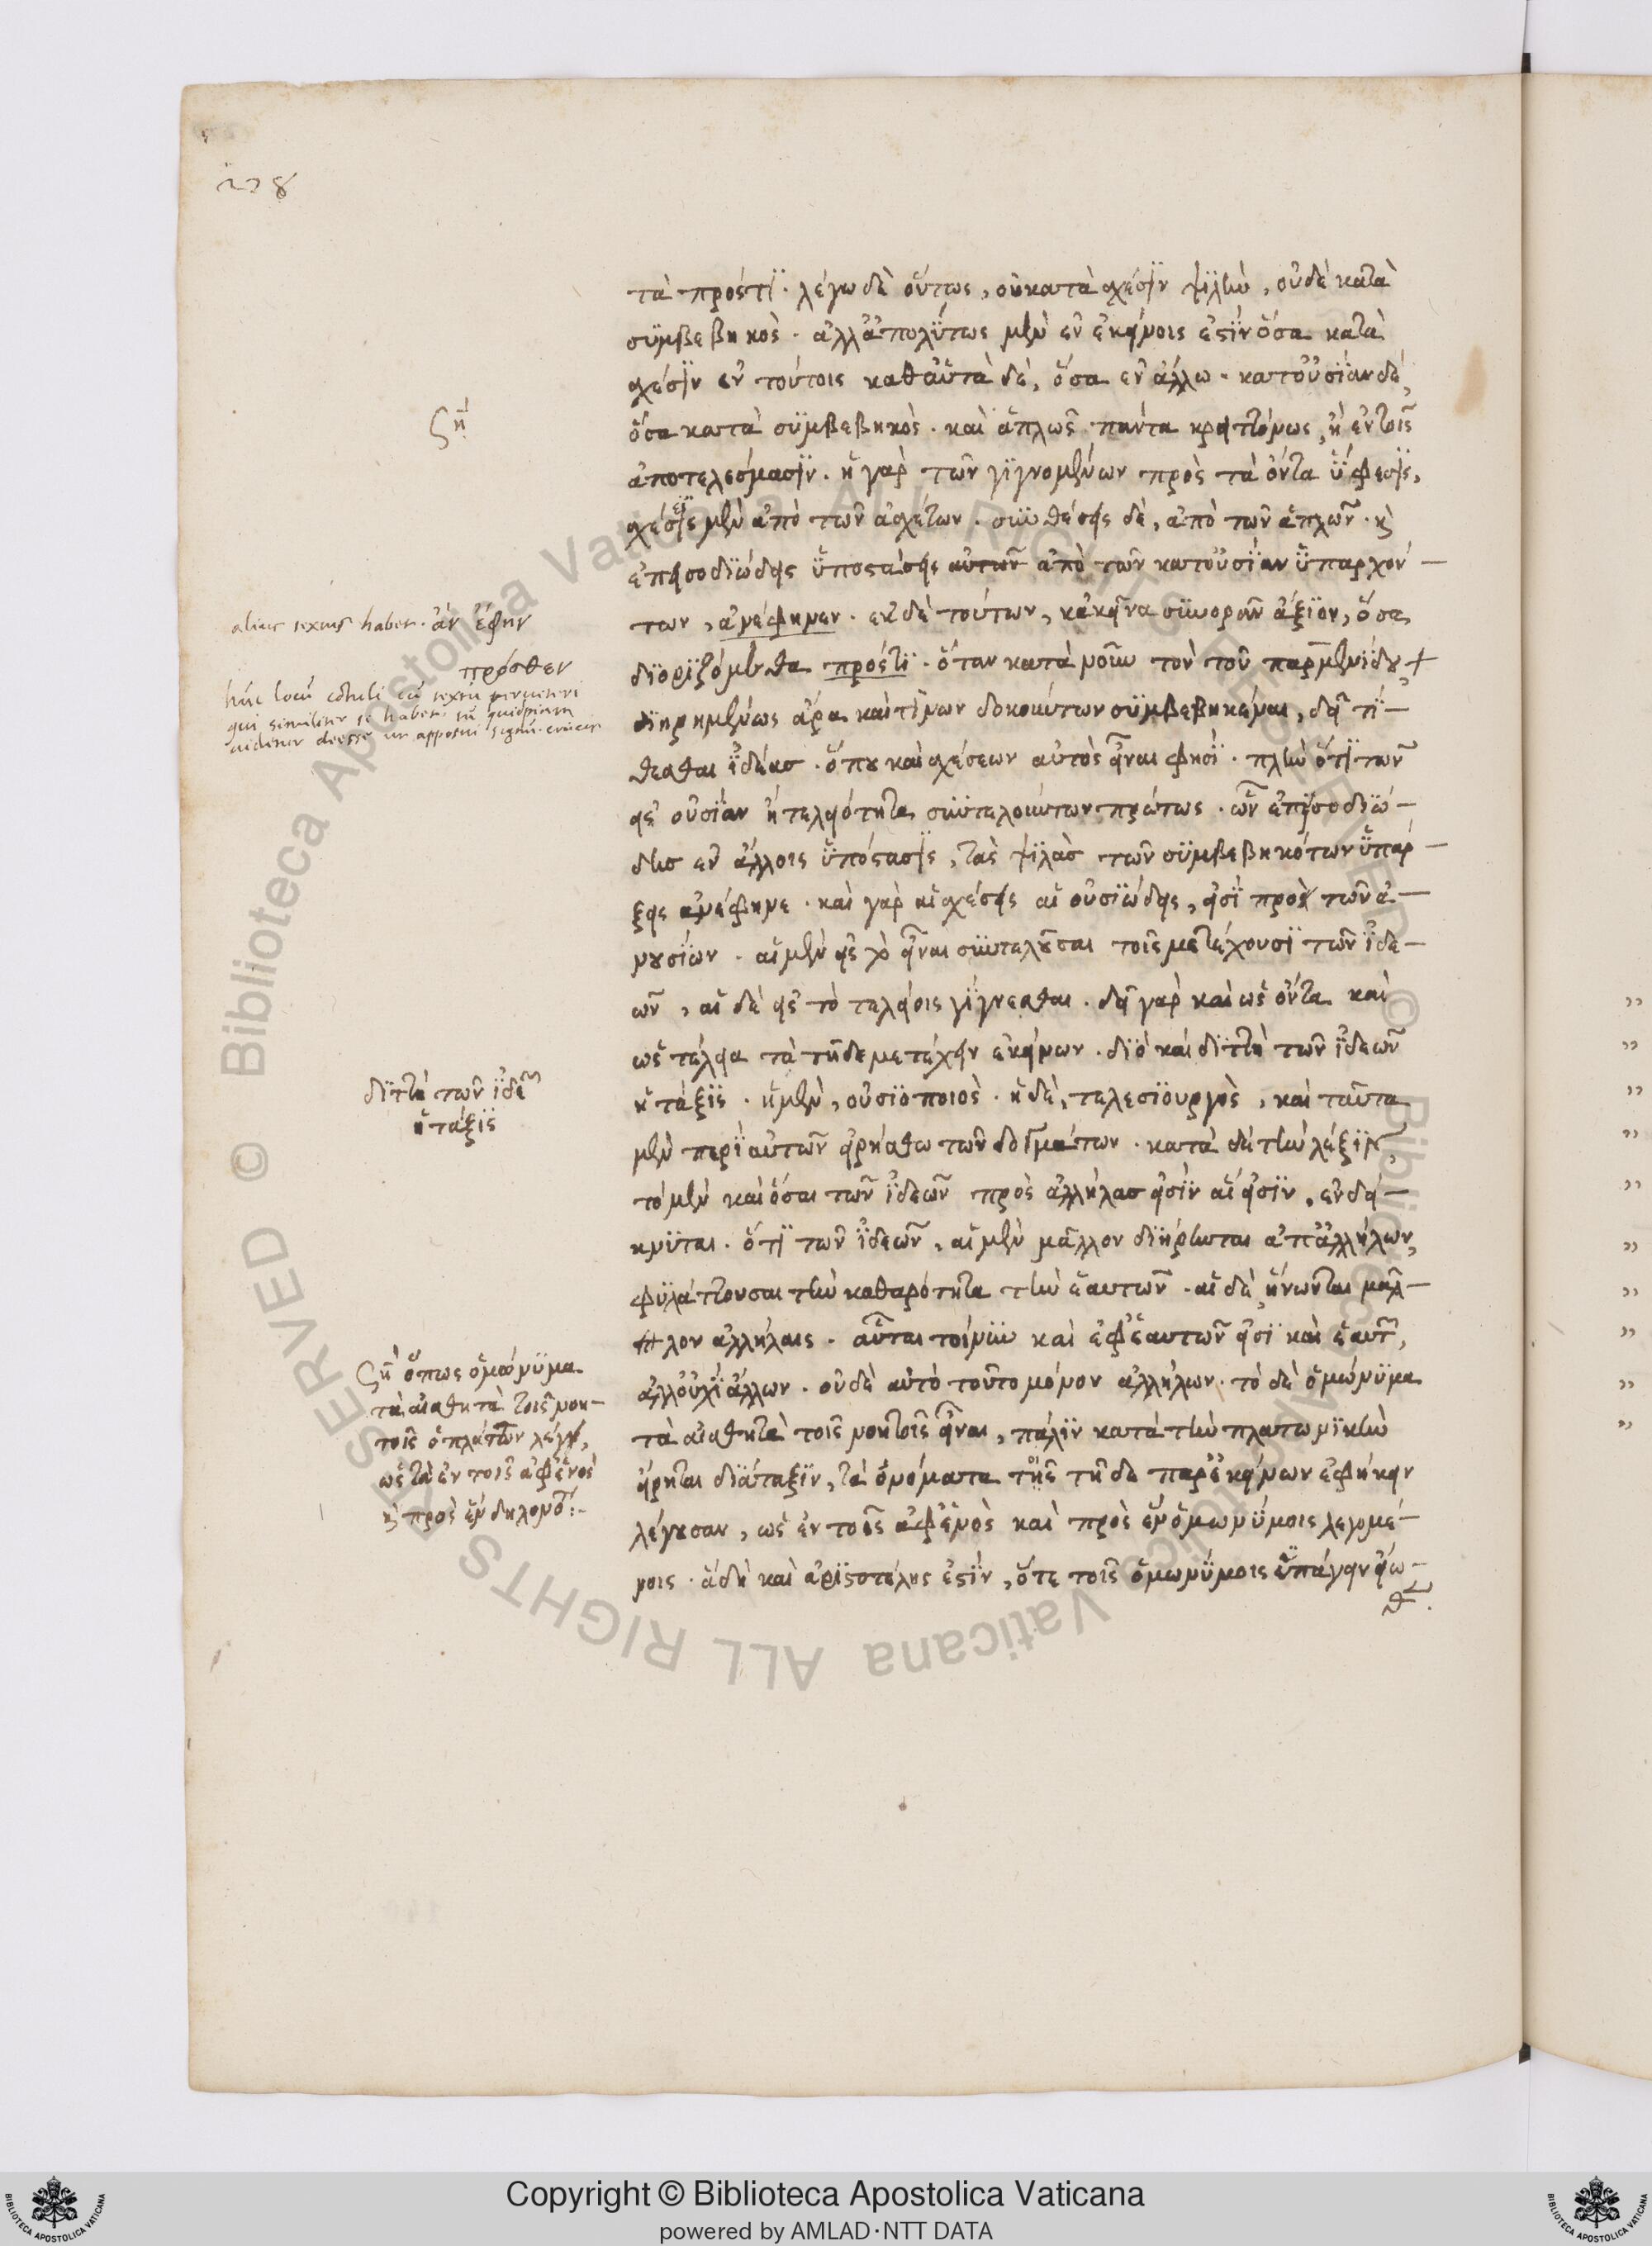 τὰ πρόστϊ. λέγω δὲ οὕτως, οὐκατὰ σχέσϊν ψϊλὴν, οὐδὲ κατὰ
σϋμβεβηκὸς. ἀλλἀπολΰτως μὲν ἐν ἐκείνοις ἐστϊν ὅσα κατὰ
σχέσϊν ἐν τούτοις καθαὑτὰ δὲ, ὅσα ἐν ἄλλω. κατοὐσΐαν δὲ,
ὅσα κατὰ σϋμβεβηκὸς. καὶ ἁπλῶς πάντα κρειττόνως, ἢ ἐν τοῖς
ἀποτελέσμασϊν. ἡ γὰρ τῶν γϊγνομένων πρὸς τὰ ὄντα ὕφεσϊς,
σχέσεις μὲν ἀπὸ τῶν ἀσχέτων. σϋνθέσεις δὲ, ἀπὸ τῶν ἁπλῶν. καὶ
ἐπεισοδϊώδεις ὑποστάσεις αὐτῶν ἀπὸ τῶν κατοὐσΐαν ὑπαρχόν-
των, ἀνέφηνεν. ἐκ δὲ τούτων, κἀκεῖνα σϋνορᾶν ἄξϊον, ὅσα
δϊορϊζόμεθα πρόστϊ. ὅταν κατὰ νοῦν τὸν τοῦ παρμενΐδου, +
δϊηρημένως ἄρα καὶ τΐνων δοκούντων σϋμβεβηκέναι, δεῖ τΐ-
θεσθαι ἰδέας. ὅπου καὶ σχέσεων αὐτὸς εἶναι φησΐ. πλὴν ὅτϊ τῶν
εἰς οὐσΐαν ἢ τελειότητα σϋντελούντων πρώτως. ὧν ἐπεισοδϊώ-
δης ἐν ἄλλοις ὑπόστασϊς, τὰς ψϊλὰς τῶν σϋμβεβηκότων ὑπάρ-
ξεις ἀνέφηνε. καὶ γὰρ αἱ σχέσεις αἱ οὐσϊώδεις, εἰσΐ πρὸ τῶν ἀ-
νουσΐων. αἱ μὲν εἰς τὸ εἶναι σϋντελοῦσαι τοῖς μετέχουσϊ τῶν ἰδε-
ῶν, αἱ δὲ εἰς τὸ τελείοις γΐγνεσθαι. δεῖ γὰρ καὶ ὡς ὄντα καὶ
ὡς τέλεια τὰ τῇδε μετέχειν ἐκείνων. δϊὸ καὶ δϊττὴ τῶν ἰδεῶν
ἡ τάξϊς. ἡ μὲν, οὐσϊοποιὸς. ἡ δὲ, τελεσϊουργὸς, καὶ ταῦτα
μὲν περΐ αὐτῶν εἰρήσθω τῶν δογμάτων. κατὰ δὲ τὴν λέξϊν,
τὸ μὲν καὶ ὅσαι τῶν ἰδεῶν πρὸς ἀλλήλας εἰσΐν αἵ εἰσϊν, ἐνδεί-
κνϋται. ὅτϊ τῶν ἰδεῶν, αἱ μὲν μᾶλλον δϊήρηνται ἀπἀλλήλων,
φϋλάττουσαι τὴν καθαρότητα τὴν ἑαυτῶν. αἱ δὲ, ἥνωνται μᾶλ-
λον ἀλλήλαις. αὗται τοίνϋν καὶ ἐφἑαυτῶν εἰσΐ καὶ ἑαυτῶν,
ἀλλοὐχΐ ἄλλων. οὐδὲ αὐτὸ τοῦτο μόνον ἀλλήλων. τὸ δὲ ὁμώνϋμα
τὰ αἰσθητὰ τοῖς νοητοῖς εἶναι, πάλϊν κατὰ τὴν πλατωνϊκὴν
εἴρηται δϊάταξϊν, τὰ ὀνόματα τοῖς τῇδε παρἐκείνων ἐφήκειν
λέγουσαν, ὡς ἐν τοῖς ἀφἑνὸς καὶ πρὸς ἓν ὁμωνΰμοις λεγομέ-
νοις. ἃ δὴ καὶ ἀρϊστοτέλης ἐστΐν, ὅτε τοῖς ὁμωνΰμοις ὑπάγειν εἰώ-
θε.
ση
alius textus habet. ἀν ἔφην
πρόσθεν
hūc locū cōtuli cū textu
qui similiter se habet. tñ quidpiam
videtur deesse ut apposui signū crucis
δϊττὴ τῶν ἰδεῶν
ἡ τάξϊς
ση ὅπως ὁμώνϋμα
τὰ αἰσθητὰ τοῖς νοη-
τοῖς ὁ πλάτων λέγει,
ὡς τὰ ἐν τοῖς ἀφἑνὸς
καὶ πρὸς ἓν δηλονότι:-
Copyright © Biblioteca Apostolica Vaticana
powered by AMLAD·NTT DATA
© Biblioteca Apostolica Vaticana ALL RIGHTS RESERVED
© Biblioteca Apostolica Vaticana ALL RIGHTS RESERVED